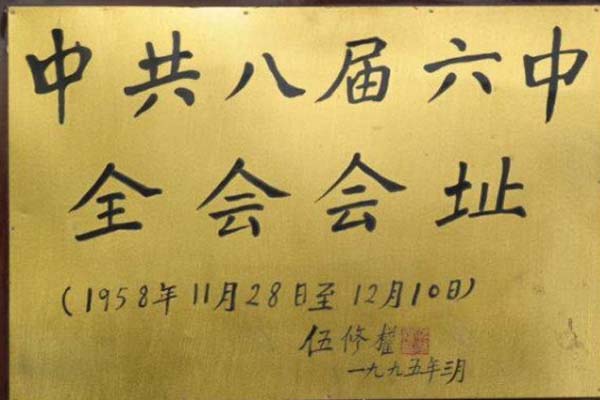 中共八届六中
全会会址
(1958年11月28日至12月10日)
伍修权
一九九五年三月